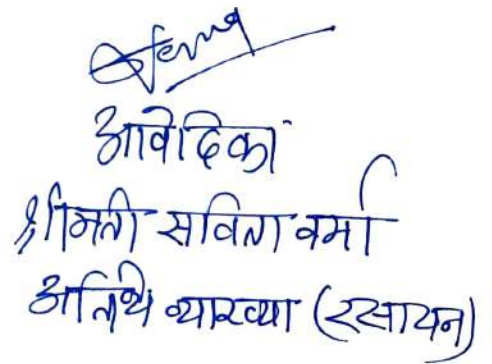 आवेदिका
श्रीमती सविता वर्मा
अतिथि व्याख्या (रसायन)